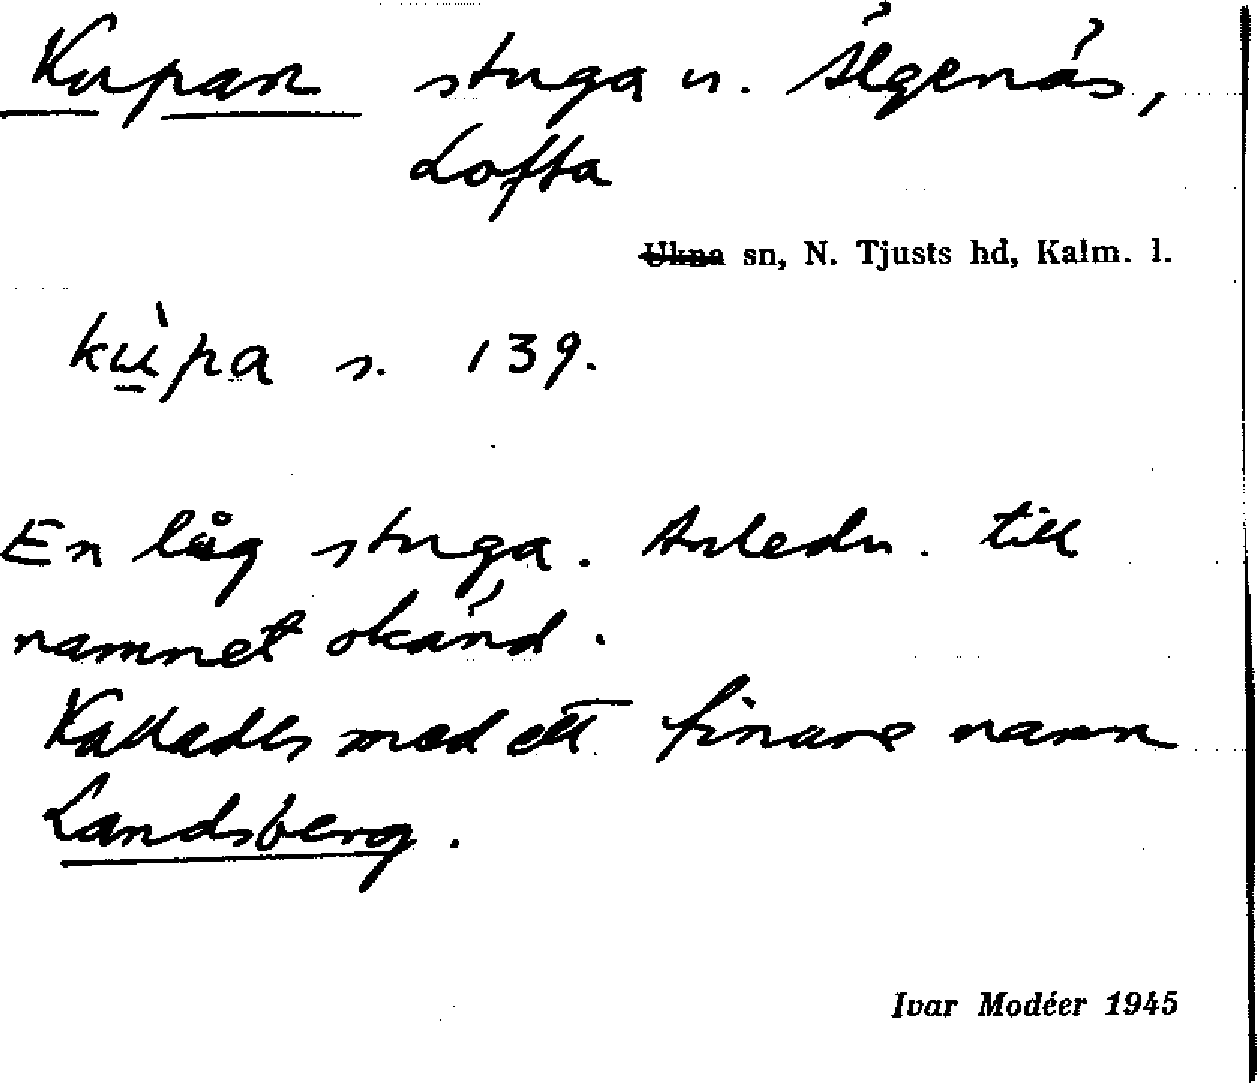 Kupan stuga u. Älgenäs,
Lofta
Ukna sn, N. Tjusts hd, Kalm. l.
kùpa s. 139.
En låg stuga. Anledn. till
namnet okänd.
Kallades med ett finare namn
Landsberg.
Ivar Modéer 1945